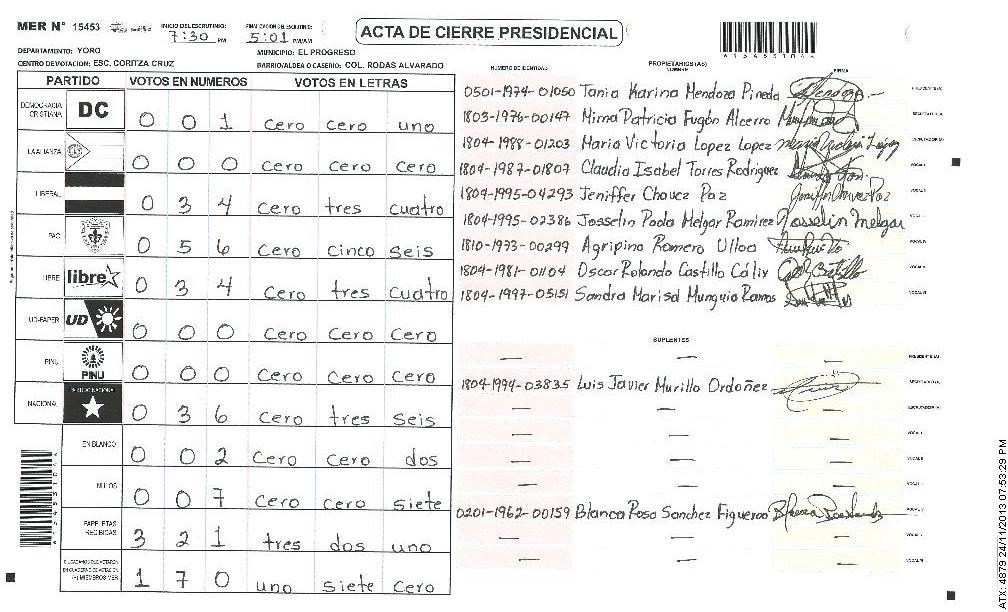 MER N° 15453
INICIO DEL ESCRUTINIO: 7:30 PM
FINALIZACION DEL ESCRUTINIO: 5:01 PM/AM
ACTA DE CIERRE PRESIDENCIAL
DEPARTAMENTO: YORO
MUNICIPIO: EL PROGRESO
CENTRO DE VOTACION: ESC. CORITZA CRUZ
BARRIO/ALDEA O CASERIO: COL. RODAS ALVARADO
PARTIDO VOTOS EN NUMEROS VOTOS EN LETRAS
DEMOCRACIA CRISTIANA DC 0 0 1 cero cero uno
LA ALIANZA 0 0 0 Cero Cero Cero
LIBERAL 0 3 4 cero tres cuatro
PAC 0 5 6 Cero Cinco Seis
LIBRE libre 0 3 4 Cero tres cuatro
UD-FAPER UD 0 0 0 Cero Cero Cero
PINU PINU 0 0 0 Cero Cero Cero
NACIONAL PARTIDO NACIONAL 0 3 6 Cero tres Seis
EN BLANCO 0 0 2 Cero Cero dos
NULOS 0 0 7 Cero Cero Siete
PAPELETAS RECIBIDAS 3 2 1 tres dos uno
CIUDADANOS QUE VOTARON EN CUADERNO DE VOTACION (+) MIEMBROS MER 1 7 0 uno siete Cero
NUMERO DE IDENTIDAD PROPIETARIOS (AS) NOMBRE FIRMA
0501-1974-01050 Tania Karina Mendoza Pineda PRESIDENTE (A)
1803-1976-00147 Mirna Patricia Fugón Alcerro SECRETARIO (A)
1804-1988-01203 Maria Victoria Lopez Lopez Maria Victoria López ESCRUTADOR (A)
1804-1987-01807 Claudia Isabel Torres Rodriguez VOCAL I
1804-1995-04293 Jeniffer Chavez Paz Jeniffer Chavez Paz
1804-1995-02386 Josselin Paola Melgar Ramirez Josselin Melgar
1810-1973-00299 Agripino Romero Ulloa
1804-1981-01104 Oscar Rolando Castillo Cálix
1804-1997-05151 Sandra Marisol Munguia Ramos
SUPLENTES
— — — PRESIDENTE (A)
1804-1994-03835 Luis Javier Murillo Ordoñez SECRETARIO (A)
— — — ESCRUTADOR (A)
— — — VOCAL I
— — —
— — —
0201-1962-00159 Blanca Rosa Sanchez Figueroa
— — —
— — —
ATX: 4879 24/11/2013 07:53:29 PM